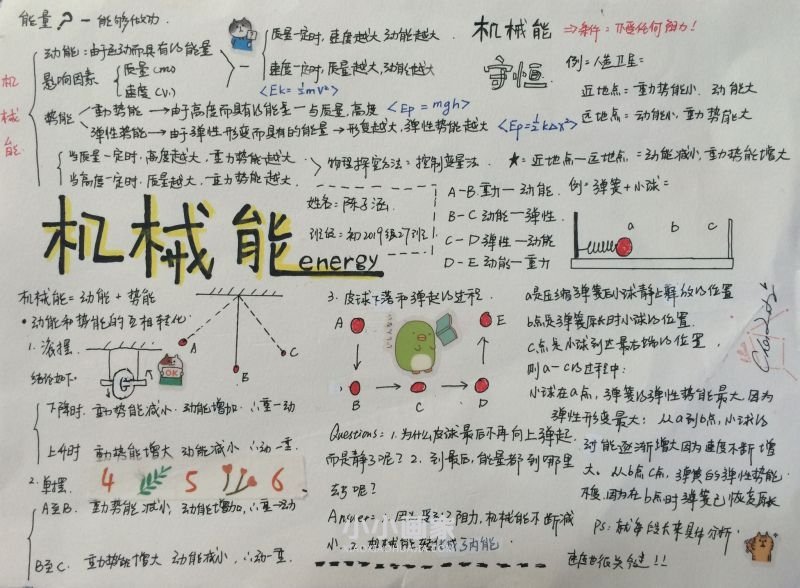 能量? - 能够做功.
机械能
动能: 由于运动而具有的能量
影响因素 质量(m)
速度(v)
质量一定时, 速度越大, 动能越大.
速度一定时, 质量越大, 动能越大
<Ek=½mv²>
势能
重力势能 → 由于高度而具有的能量 — 与质量, 高度 <Ep=mgh>
弹性势能 → 由于弹性形变而具有的能量 → 形变越大, 弹性势能越大 <Ep=½kΔx²>
当质量一定时, 高度越大, 重力势能越大.
当高度一定时, 质量越大, 重力势能越大.
物理探究方法: 控制变量法.
机械能守恒 ⇒ 条件: 不受任何阻力!
例: 人造卫星:
近地点: 重力势能小, 动能大
远地点: 动能小, 重力势能大
★: 近地点—远地点: 动能减小, 重力势能增大
机械能
energy
姓名: 陈子涵
班级: 初2019级27班
A-B. 重力 — 动能.
B-C 动能 — 弹性.
C-D 弹性 — 动能
D-E 动能 — 重力
例: 弹簧+小球:
a b c
机械能=动能+势能
• 动能和势能的互相转化:
1. 滚摆.
OK
结论如下.
下降时. 重力势能减小. 动能增加. ∴重—动
上升时 重力势能增大 动能减小 ∴动—重.
2. 单摆.
4 5 6
A
B
C
A至B. 重力势能减小, 动能增加, ∴重—动
B至C. 重力势能增大 动能减小, ∴动—重.
3. 皮球下落和弹起的过程.
A E
B C D
Questions: 1. 为什么皮球最后不再向上弹起
而是静了呢? 2. 到最后, 能量都到哪里
去了呢?
Answer: 因为受到了阻力, 机械能不断减
小. 2. 机械能转化成了内能
小小画家
a是压缩弹簧后小球静止释放的位置
b点是弹簧原长时小球的位置.
c点是小球到达最右端的位置.
则a-c的过程中:
小球在a点, 弹簧的弹性势能最大, 因为
弹性形变最大; 从a到b点, 小球的
动能逐渐增大因为速度不断增
大. 从b点c点, 弹簧的弹性势能
不变, 因为在b点时弹簧已恢复原长
PS: 就每段去来具体分析.
速度很关键!!